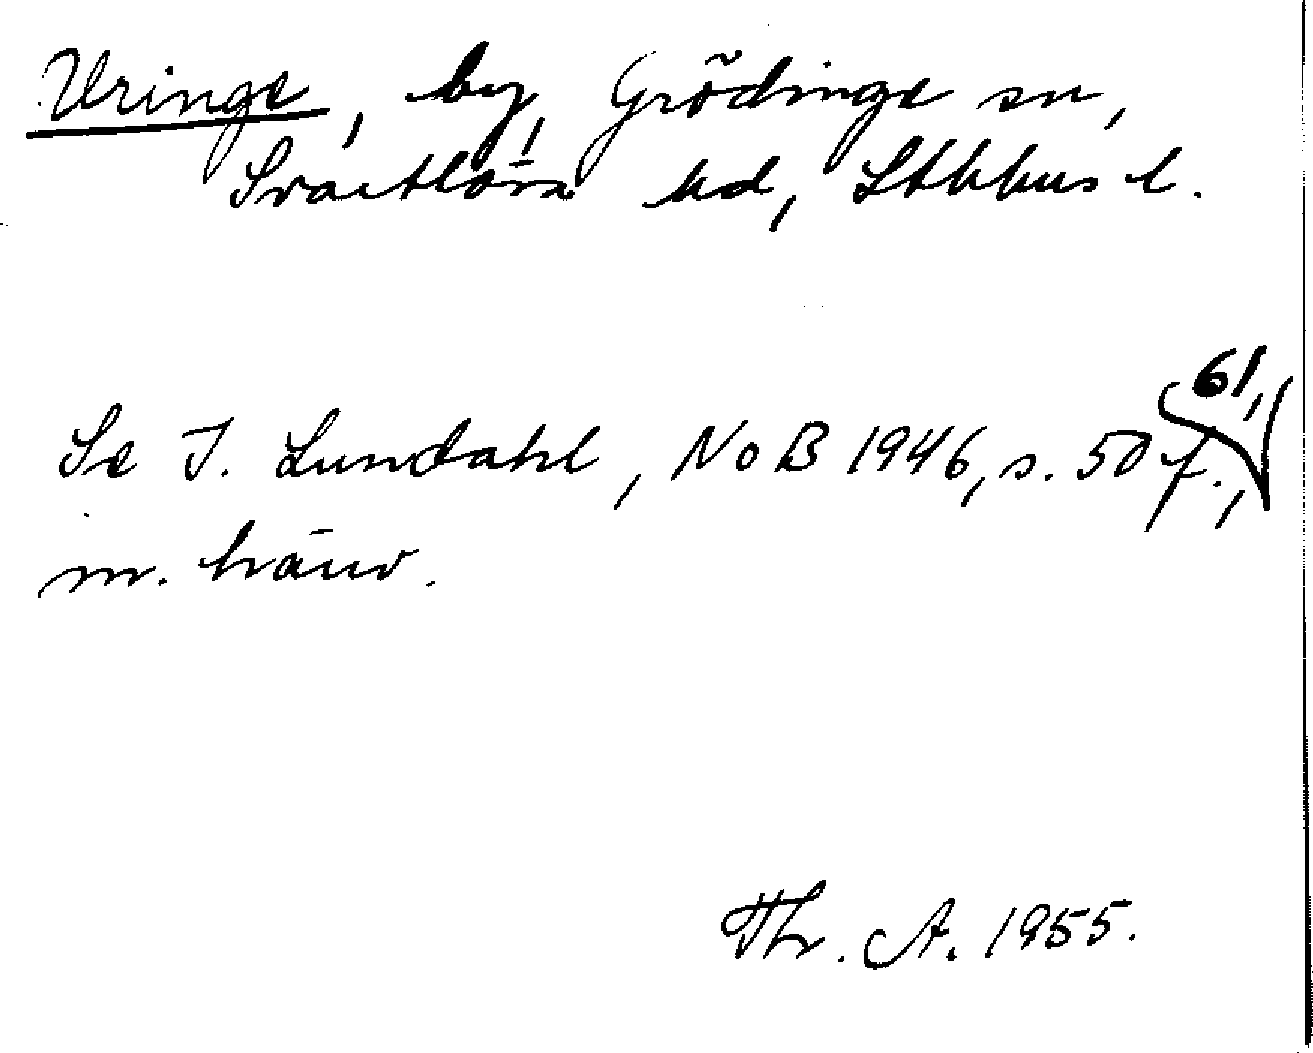 Uringe, by, Grödinge sn,
Svartlösa hd, Sthhus l.
Se I. Lundahl, NoB 1946, s. 50 f., 61,
m. hänv.
Th. A. 1955.